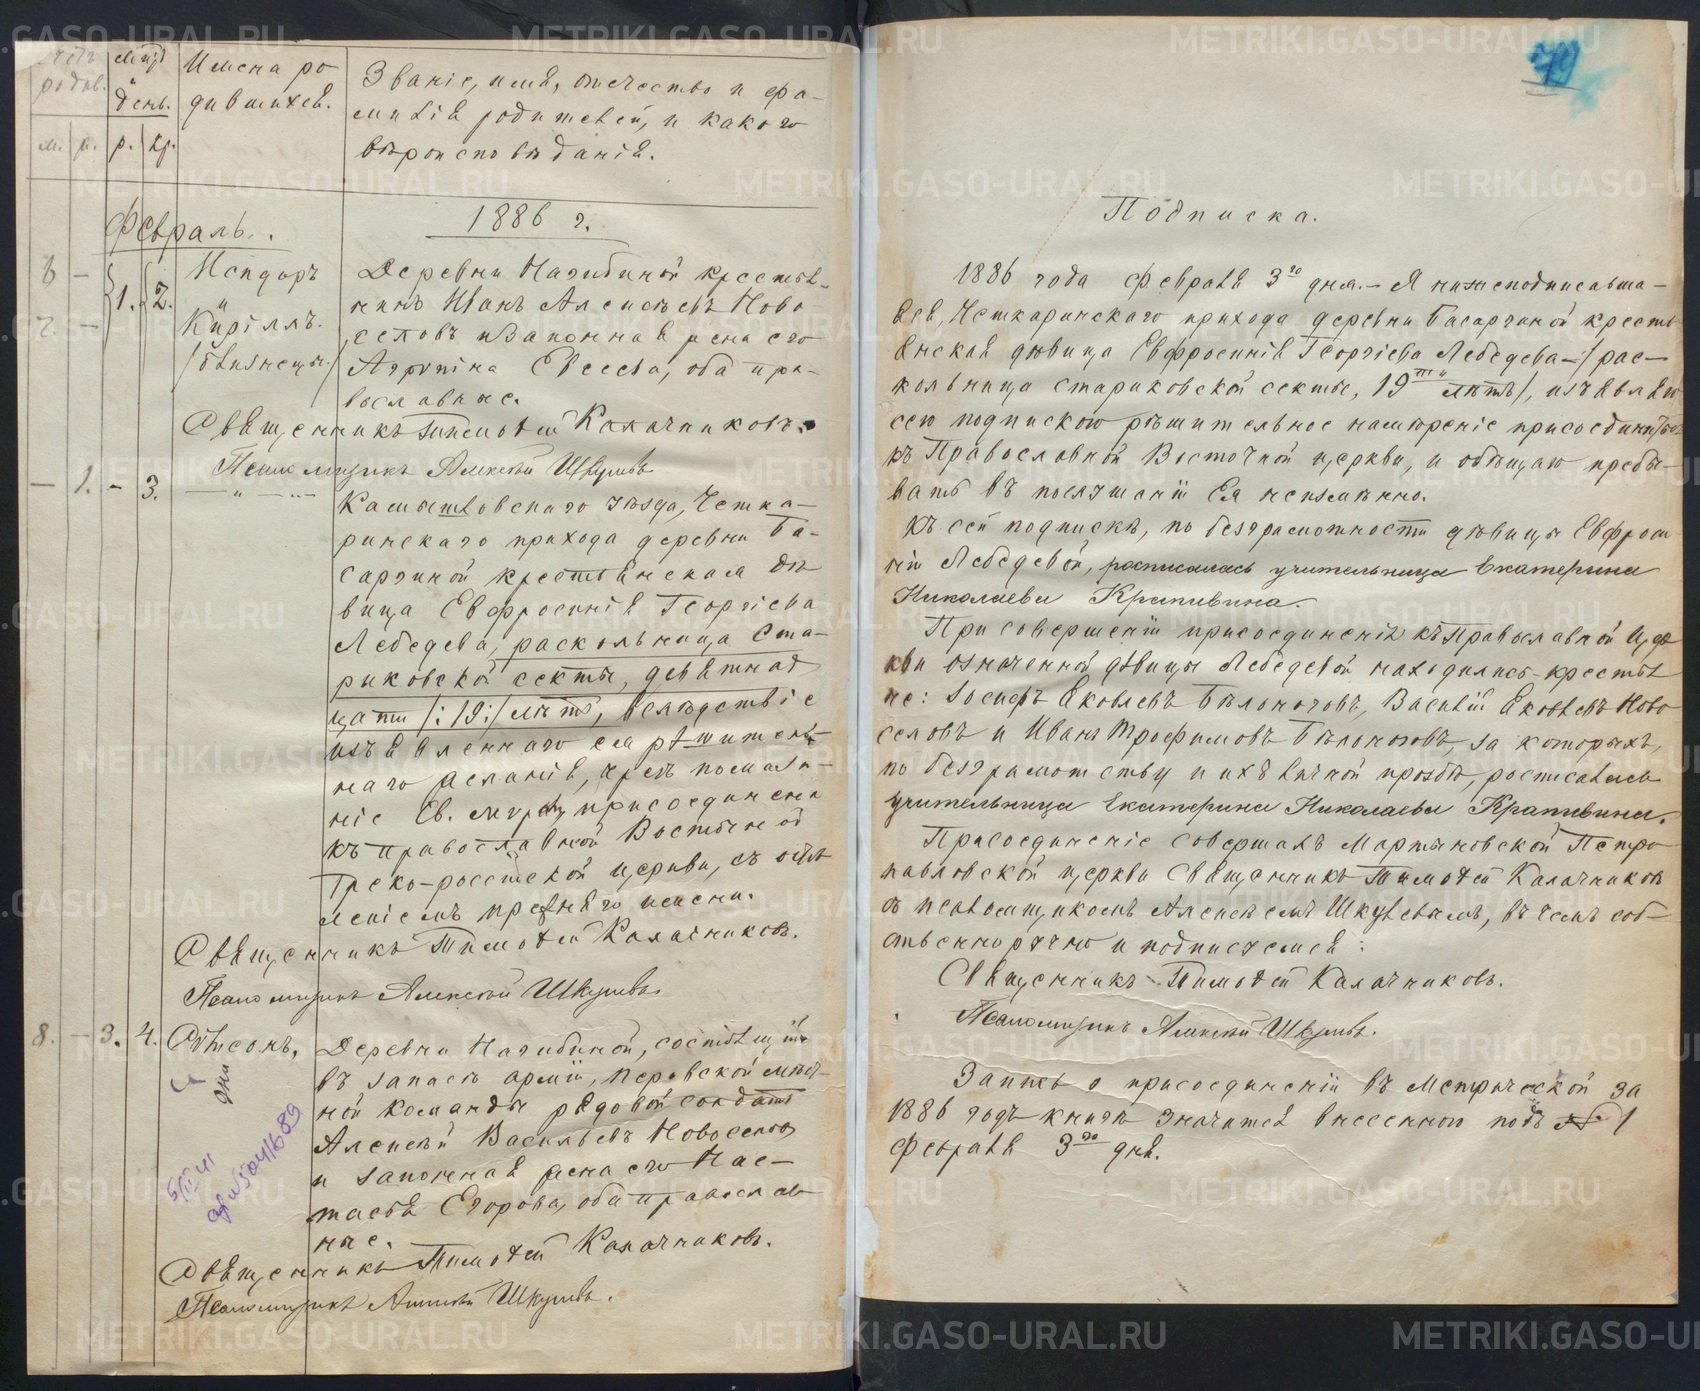 Счетъ
родив.
Мѣсяцъ
и
день.
Имена ро
дившихся.
Званіе, имя, отчество и фа-
милія родителей, и какого
вѣроисповѣданія.
м. р. р. кр.
Февраль.
1886 г.
6 - 1. 2. Исидоръ
Деревни Нагибиной крестья-
"
нинъ Иванъ Алексѣевъ Ново
7. - Кириллъ.
селовъ и законная жена его
/близнецы./
Агрипина Евсеева, оба пра-
вославные.
Священникъ Тимоѳей Калачниковъ.
Псаломщикъ Алексѣй Шкулевъ
- 1. - 3. - " - " -
Камышловскаго уѣзда, Четка-
ринскаго прихода деревни Ба-
саргиной крестьянская дѣ
вица Евфросинія Георгіева
Лебедева, раскольница ста-
риковской секты, девятнад
цати /:19:/ лѣтъ, вслѣдствіе
изъявленнаго ея рѣшитель-
наго желанія, чрезъ помаза-
ніе Св. мѵромъ присоединена
къ православной Восточной
Греко-россійской церкви, съ остав
леніемъ прежняго имени.
Священникъ Тимоѳей Калачниковъ.
Псаломщикъ Алексѣй Шкулевъ.
8. - 3. 4. Сѵмеонъ.
Деревни Нагибиной, состоящій
въ запасѣ арміи, Перовской мѣст-
ной команды рядовой солдатъ
Алексѣй Васильевъ Новоселовъ
и законная жена его Нас-
тасья Егорова, оба православ
ные.
Священникъ Тимоѳей Калачниковъ.
Псаломщикъ Алексѣй Шкулевъ.
79
Подписка.
1886 года Февраля 3го дня. - Я нижеподписавша-
яся, Четкаринскаго прихода деревни Басаргиной кресть
янская дѣвица Евфросинія Георгіева Лебедева -/рас-
кольница стариковской секты, 19ти лѣтъ/, изъявляю
сею подпискою рѣшительное намѣреніе присоединиться
къ Православной Восточной церкви, и обѣщаю пребы-
вать въ послушеніи Ея неизмѣнно.
Къ сей подпискѣ, по безграмотности дѣвицы Евфроси
ніи Лебедевой, росписалась учительница Екатерина
Николаева Крапивина.
При совершеніи присоединенія къ Православной Цер
кви означенной дѣвицы Лебедевой находились крестья
не: Іосифъ Яковлевъ Бѣлоноговъ, Василій Яковлевъ Ново
селовъ и Иванъ Трофимовъ Бѣлоноговъ, за которыхъ,
по безграмотству и ихъ личной прозьбѣ, росписалась
учительница Екатерина Николаева Крапивина.
Присоединеніе совершалъ Мартыновской Петро
павловской церкви Священникъ Тимоѳей Калачниковъ
съ псаломщикомъ Алексѣемъ Шкулевымъ, въ чемъ соб-
ственноручно и подписуемся:
Священникъ Тимоѳей Калачниковъ.
Псаломщикъ Алексѣй Шкулевъ.
Запись о присоединеніи въ Метрической за
1886 годъ книгѣ значится внесенною подъ № 1
Февраля 3го дня.